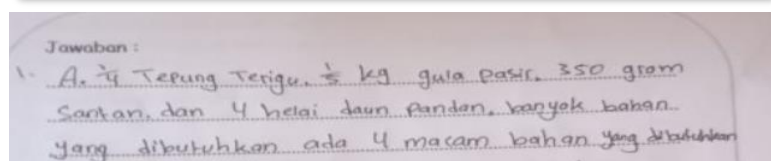 Jawaban :
1. A. 1/4 Tepung Terigu, 1/5 kg gula pasir. 350 gram
Santan, dan 4 helai daun pandan, banyak bahan
yang dibutuhkan ada 4 macam bahan yang dibutuhkan